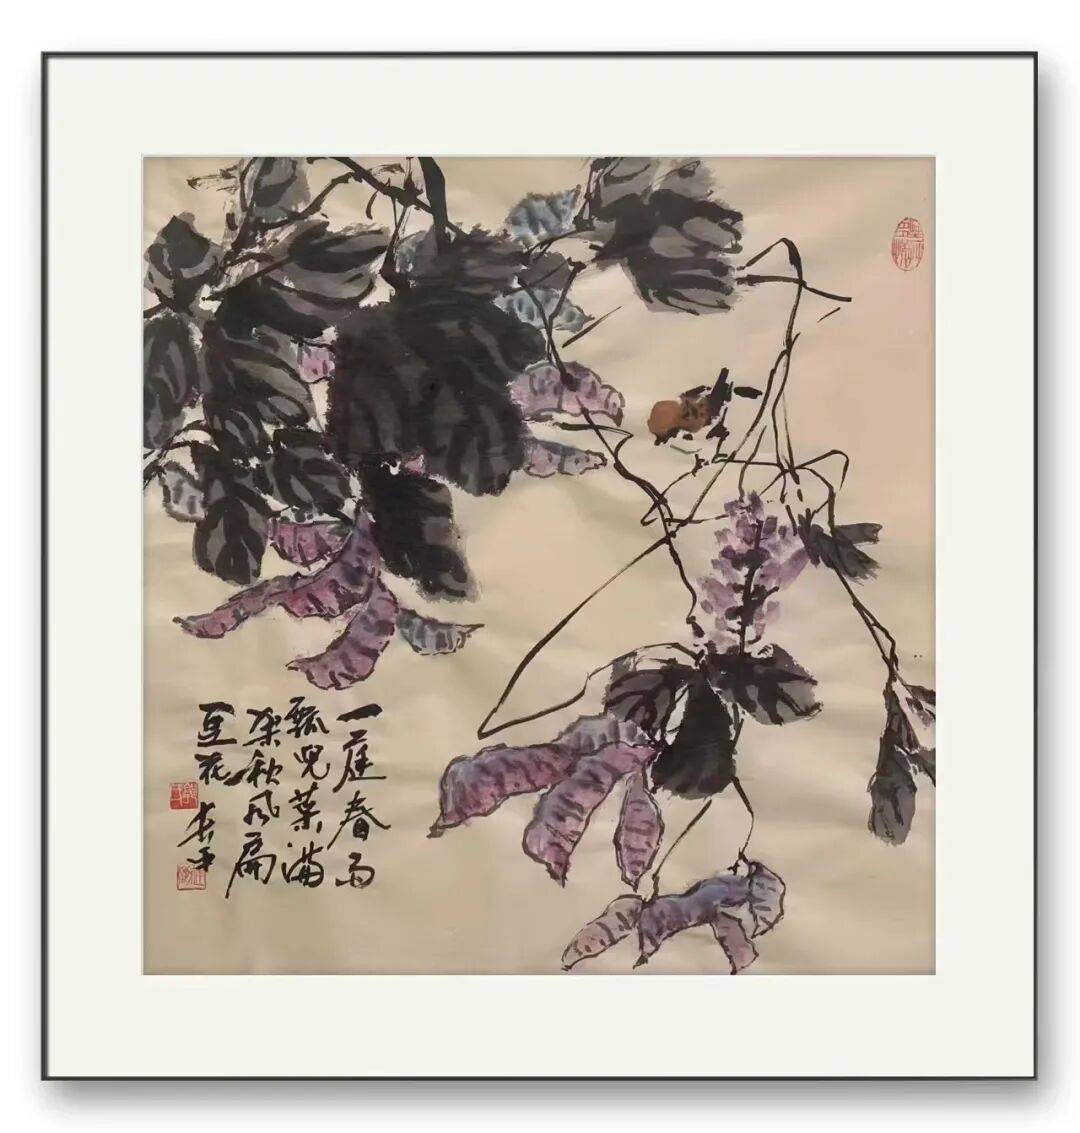 一庭春雨
瓢兒菜满
架秋风扁
豆花